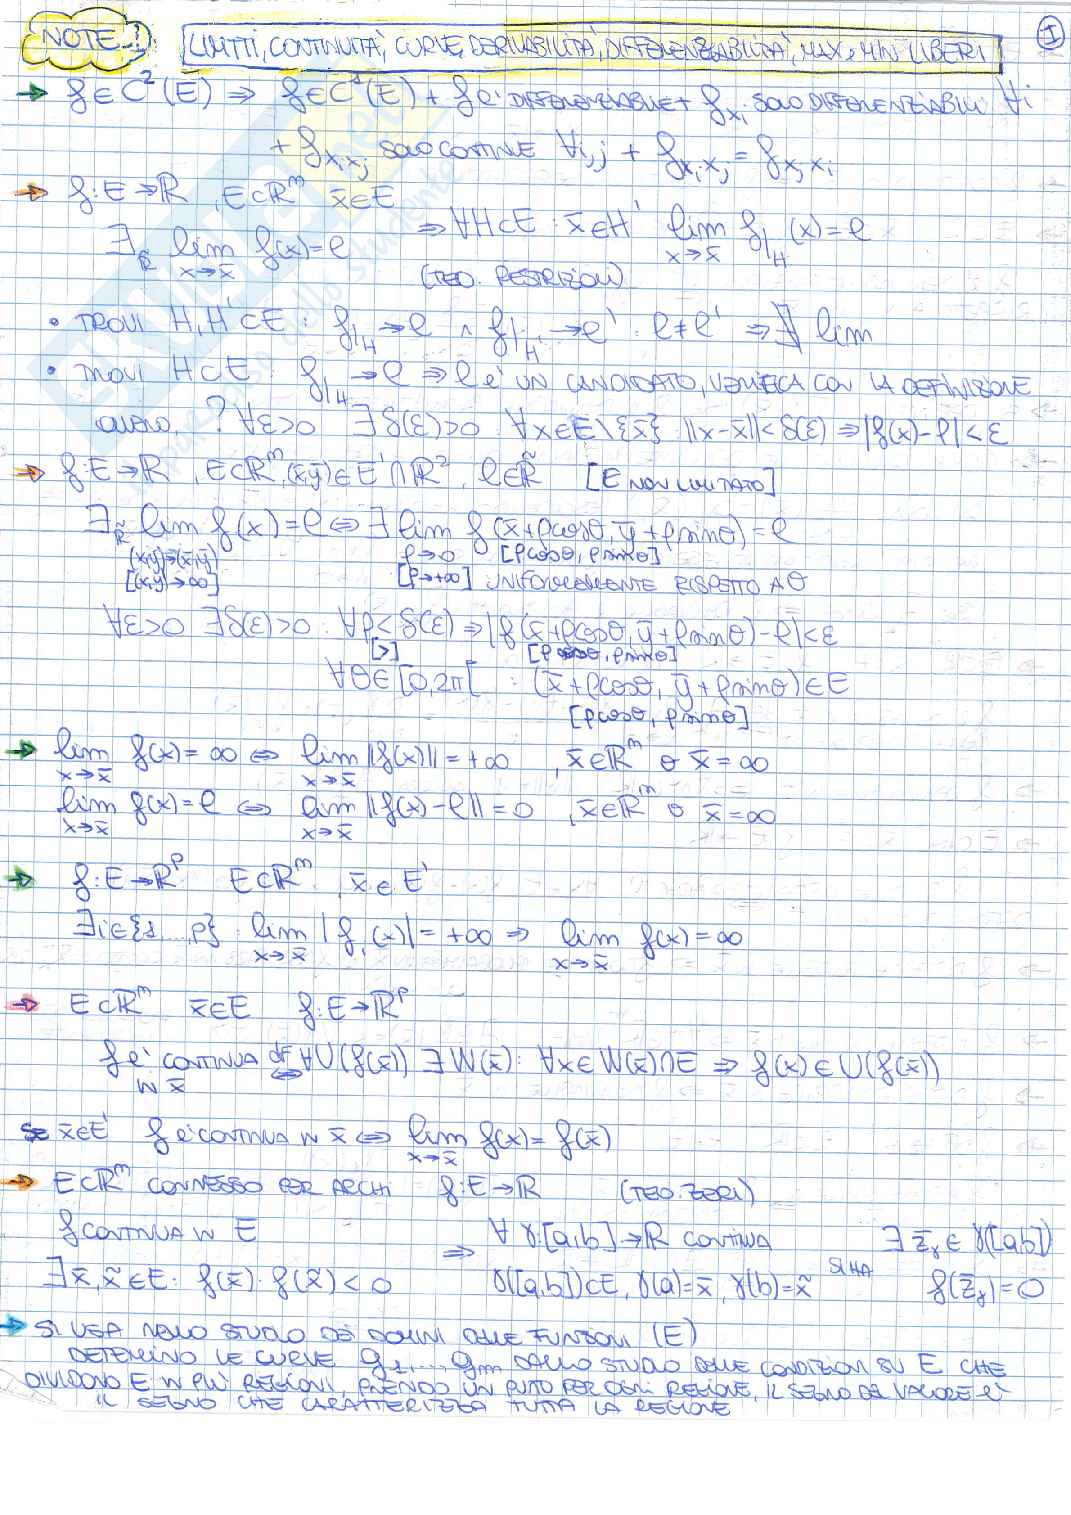 NOTE! LIMITI, CONTINUITÀ, CURVE, DERIVABILITÀ, DIFFERENZIABILITÀ, MAX e MIN LIBERI 1
→ f∈C²(E) ⇒ f∈C¹(E) + f è DIFFERENZIABILE + f_xi sono DIFFERENZIABILI ∀i
+ f_xixj sono CONTINUE ∀i,j + f_xixj = f_xjxi
→ f:E→ℝ, E⊂ℝᵐ x̄∈E
∃_ℝ̃ lim_{x→x̄} f(x)=l ⇒ ∀H⊂E : x̄∈H' lim_{x→x̄} f|_H (x)=l
(TEO. RESTRIZIONI)
• TROVI H,H'⊂E : f|_H→l ∧ f|_H'→l' : l≠l' ⇒ ∄ lim
• TROVI H⊂E : f|_H→l ⇒ l è UN CANDIDATO, VERIFICA CON LA DEFINIZIONE
ovvero, ? ∀ε>0 ∃δ(ε)>0 : ∀x∈E\{x̄} : ||x-x̄||<δ(ε) ⇒ |f(x)-l|<ε
→ f:E→ℝ, E⊂ℝᵐ, (x̄,ȳ)∈E'∩ℝ², l∈ℝ̃ [E NON LIMITATO]
∃_ℝ̃ lim f(x)=l ⇔ ∃ lim f(x̄+ρcosθ, ȳ+ρsinθ)=l
(x,y)→(x̄,ȳ) ρ→0 [ρcosθ, ρsinθ]
[(x,y)→∞] [ρ→+∞] UNIFORMEMENTE RISPETTO A θ
∀ε>0 ∃δ(ε)>0 : ∀ρ<δ(ε) ⇒ |f(x̄+ρcosθ, ȳ+ρsinθ)-l|<ε
[>] [ρcosθ, ρsinθ]
∀θ∈[0,2π[ : (x̄+ρcosθ, ȳ+ρsinθ)∈E
[ρcosθ, ρsinθ]
→ lim_{x→x̄} f(x)=∞ ⇔ lim_{x→x̄} ||f(x)||=+∞ , x̄∈ℝᵐ o x̄=∞
lim_{x→x̄} f(x)=l ⇔ lim_{x→x̄} ||f(x)-l||=0 , x̄∈ℝᵐ o x̄=∞
→ f:E→ℝᵖ E⊂ℝᵐ, x̄∈E'
∃i∈{1,...,p} : lim_{x→x̄} |f_i(x)|=+∞ ⇒ lim_{x→x̄} f(x)=∞
→ E⊂ℝᵐ x̄∈E f:E→ℝᵖ
f è CONTINUA IN x̄ ⇔(df) ∀U(f(x̄)) ∃W(x̄) : ∀x∈W(x̄)∩E ⇒ f(x)∈U(f(x̄))
se x̄∈E' f è CONTINUA IN x̄ ⇔ lim_{x→x̄} f(x)=f(x̄)
→ E⊂ℝᵐ CONNESSO PER ARCHI f:E→ℝ (TEO. ZERI)
f CONTINUA IN E ⇒ ∀γ:[a,b]→ℝ CONTINUA ∃z̄_γ∈γ([a,b])
∃x̄,x̃∈E : f(x̄)·f(x̃)<0 γ([a,b])⊂E, γ(a)=x̄, γ(b)=x̃ SI HA f(z̄_γ)=0
→ SI USA NELLO STUDIO DEI DOMINI DELLE FUNZIONI (E)
DETERMINO LE CURVE g₁,...,gm DALLO STUDIO DELLE CONDIZIONI SU E CHE
DIVIDONO E IN PIÙ REGIONI, PRENDO UN PUNTO PER OGNI REGIONE, IL SEGNO DEL VALORE È
IL SEGNO CHE CARATTERIZZA TUTTA LA REGIONE